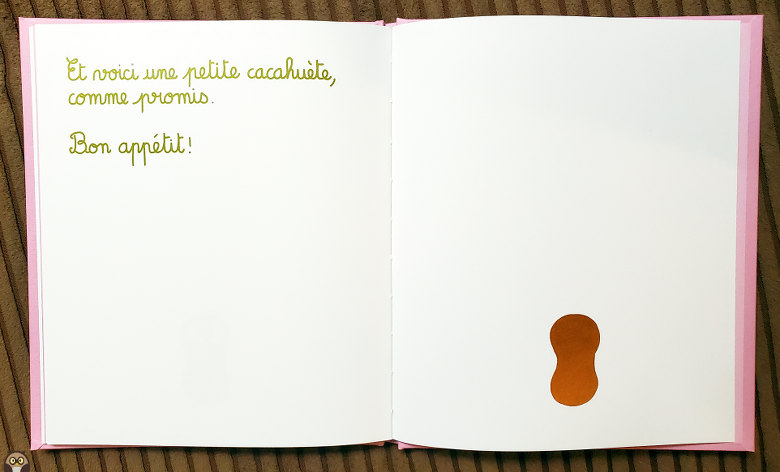 Et voici une petite cacahuète,
comme promis.
Bon appétit!